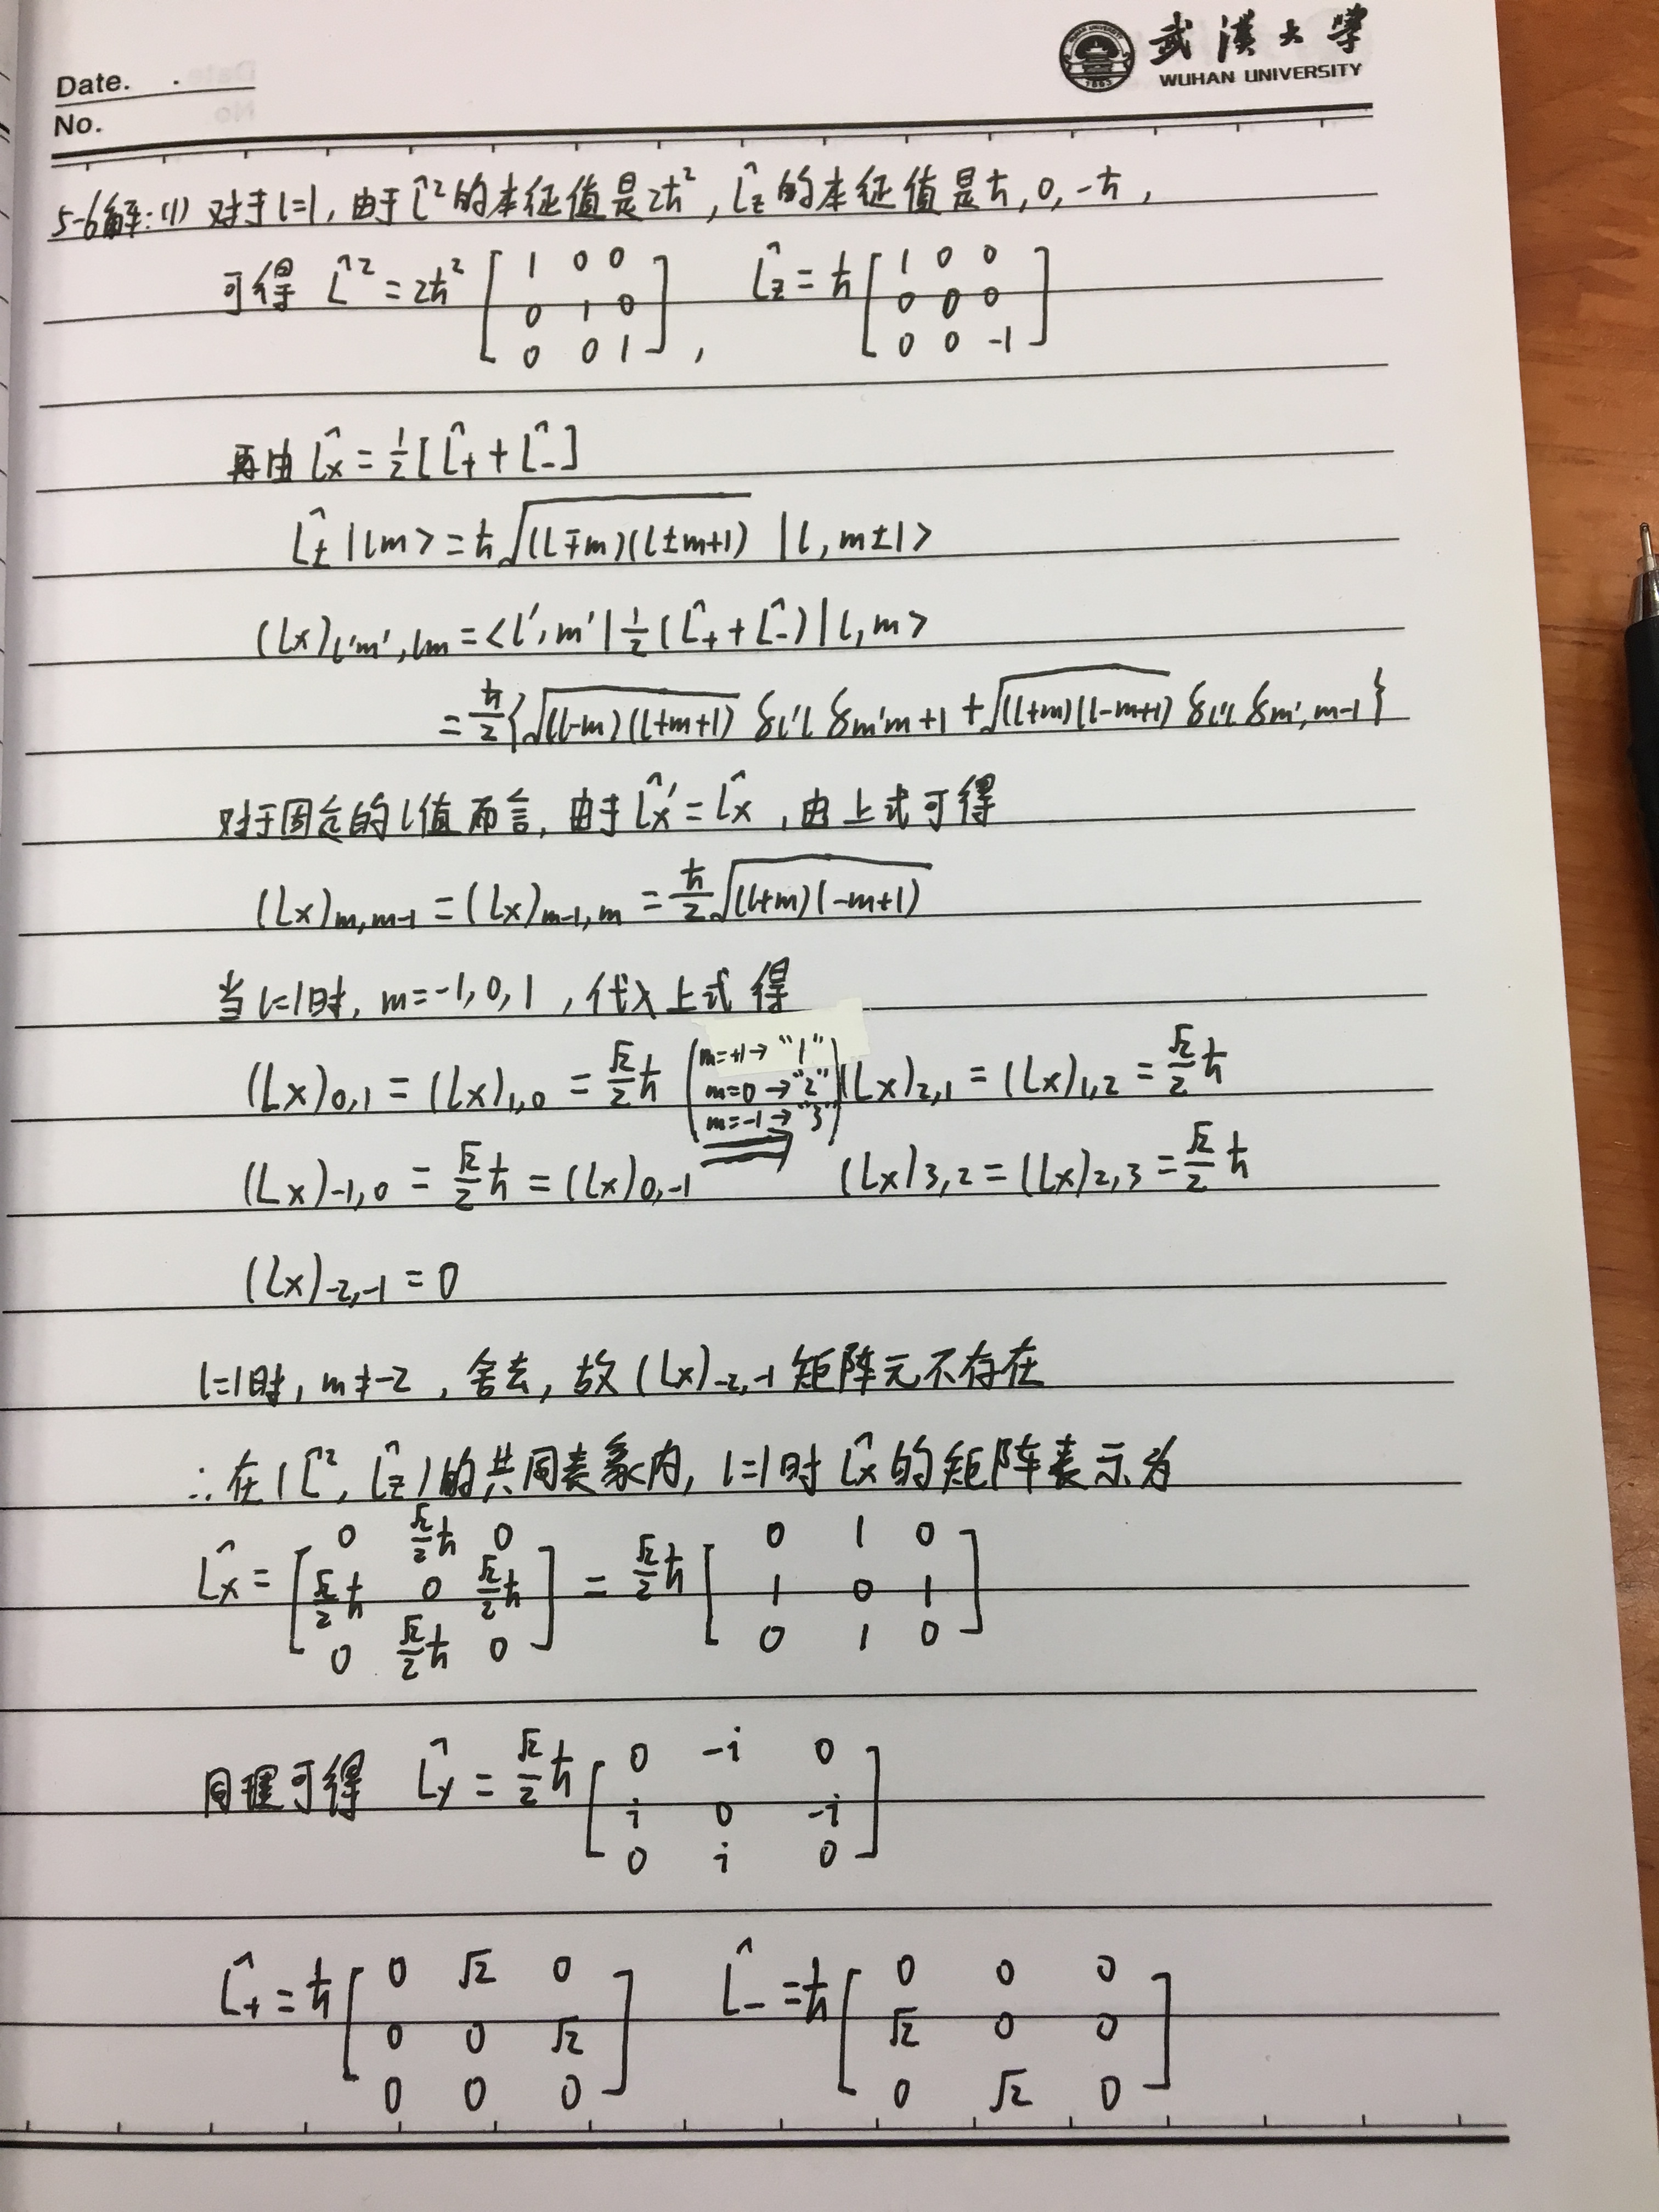 Date.
No.
武漢大學
WUHAN UNIVERSITY
5-6解:(1) 对于l=1, 由于L̂²的本征值是2ħ², L̂z的本征值是ħ, 0, -ħ,
可得 L̂² = 2ħ² [1 0 0; 0 1 0; 0 0 1], L̂z = ħ [1 0 0; 0 0 0; 0 0 -1]
再由 L̂x = 1/2 [L̂+ + L̂-]
L̂± |lm> = ħ √((l∓m)(l±m+1)) |l, m±1>
(Lx)l'm', lm = <l', m'| 1/2 (L̂+ + L̂-) |l, m>
= ħ/2 {√((l-m)(l+m+1)) δl'l δm'm+1 + √((l+m)(l-m+1)) δl'l δm', m-1}
对于固定的l值而言, 由于L̂x' = L̂x, 由上式可得
(Lx)m, m-1 = (Lx)m-1, m = ħ/2 √((l+m)(-m+1))
当l=1时, m=-1, 0, 1, 代入上式得
(Lx)0,1 = (Lx)1,0 = √2/2 ħ (m=+1→"1" m=0→"2" m=-1→"3") (Lx)2,1 = (Lx)1,2 = √2/2 ħ
(Lx)-1,0 = √2/2 ħ = (Lx)0,-1 ⇒ (Lx)3,2 = (Lx)2,3 = √2/2 ħ
(Lx)-2,-1 = 0
l=1时, m≠-2, 舍去, 故(Lx)-2,-1矩阵元不存在
∴在(L̂², L̂z)的共同表象内, l=1时L̂x的矩阵表示为
L̂x = [0 √2/2 ħ 0; √2/2 ħ 0 √2/2 ħ; 0 √2/2 ħ 0] = √2/2 ħ [0 1 0; 1 0 1; 0 1 0]
同理可得 L̂y = √2/2 ħ [0 -i 0; i 0 -i; 0 i 0]
L̂+ = ħ [0 √2 0; 0 0 √2; 0 0 0] L̂- = ħ [0 0 0; √2 0 0; 0 √2 0]